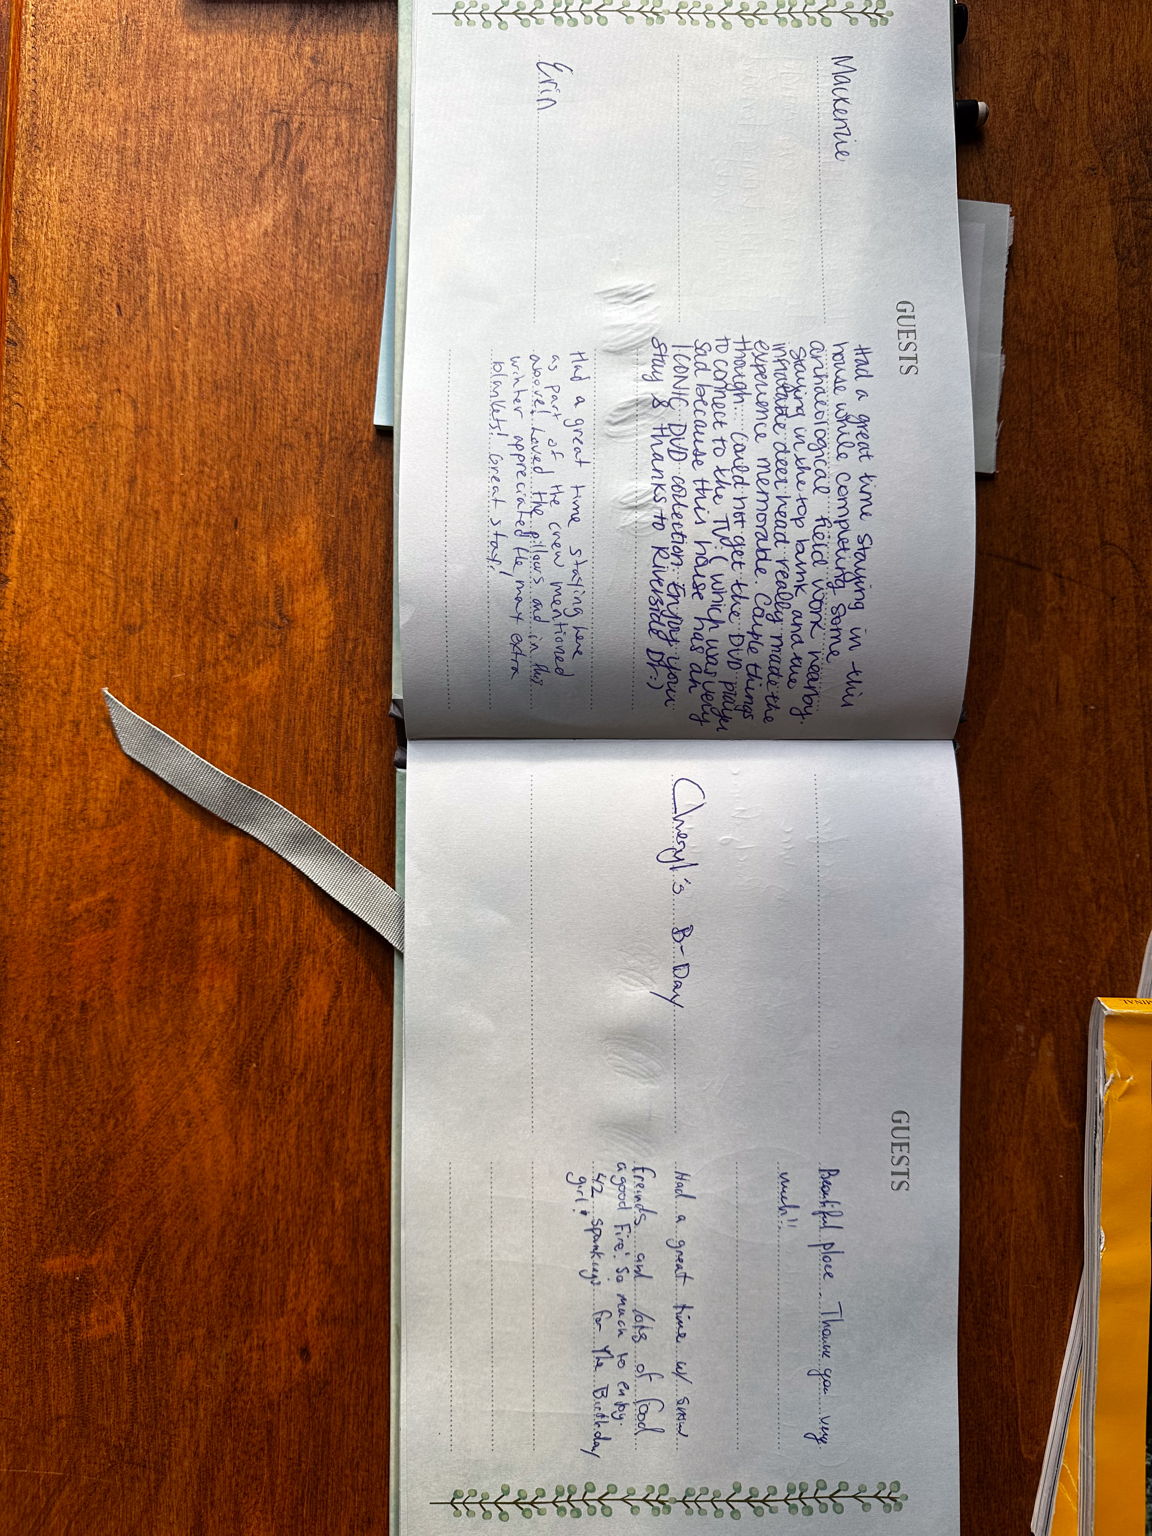 GUESTS
Mackenzie
Had a great time staying in this
house while completing some
archaeological field work nearby.
Staying in the top bunk and the
inflatable deer head really made the
experience memorable. Couple things
though... could not get the DVD player
to connect to the TV :( which was very
sad because this house has an
ICONIC DVD collection. Enjoy your
stay & thanks to Riverside Dr :)
Erin
Had a great time staying here
as part of the crew mentioned
above! Loved the pillows and in this
winter appreciated the many extra
blankets! Great stay!
GUESTS
Beautiful place. Thank you very
much!!
Cheryl's B-Day
Had a great time w/ snow
freinds and lots of food
a good Fire! So much to enjoy.
42 spankings for the Birthday
girl!
MINAL